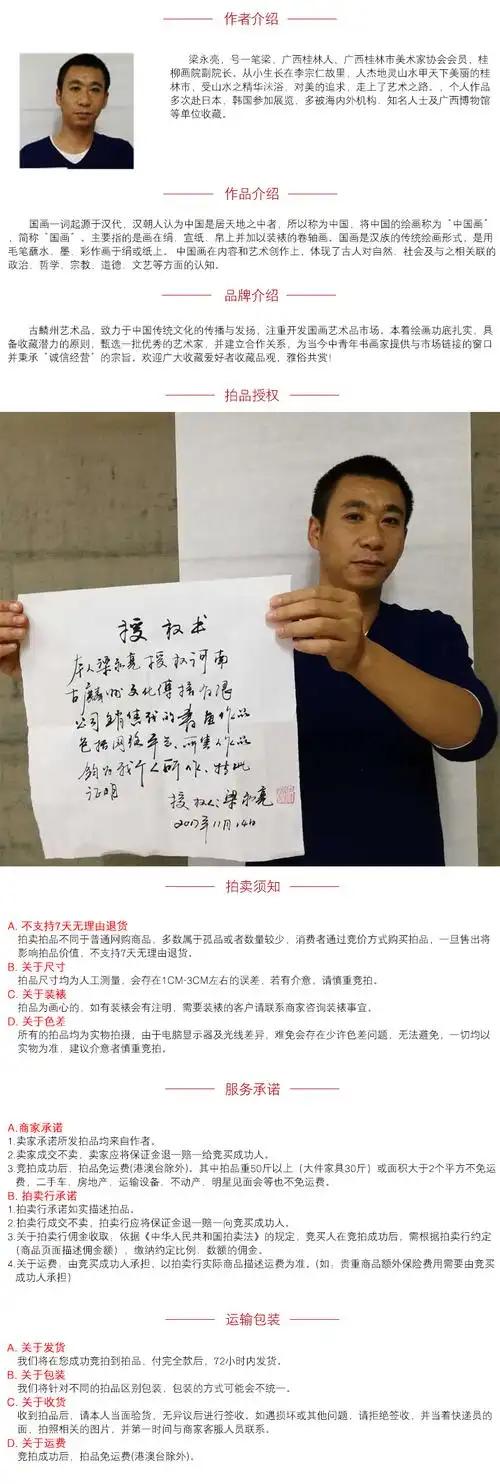 作者介绍
梁永亮，号一笔梁，广西桂林人、广西桂林市美术家协会会员，桂
柳画院副院长。从小生长在李宗仁故里，人杰地灵山水甲天下美丽的桂
林市，受山水之精华沐浴，对美的追求，走上了艺术之路。，个人作品
多次赴日本，韩国参加展览，多被海内外机构，知名人士及广西博物馆
等单位收藏。
作品介绍
国画一词起源于汉代，汉朝人认为中国是居天地之中者，所以称为中国，将中国的绘画称为“中国画”
，简称“国画”。主要指的是画在绢、宣纸、帛上并加以装裱的卷轴画。国画是汉族的传统绘画形式，是用
毛笔蘸水、墨、彩作画于绢或纸上。 中国画在内容和艺术创作上，体现了古人对自然、社会及与之相关联的
政治、哲学、宗教、道德、文艺等方面的认知。
品牌介绍
古麟州艺术品，致力于中国传统文化的传播与发扬，注重开发国画艺术品市场。本着绘画功底扎实，具
备收藏潜力的原则，甄选一批优秀的艺术家，并建立合作关系，为当今中青年书画家提供与市场链接的窗口
并秉承“诚信经营”的宗旨。欢迎广大收藏爱好者收藏品观，雅俗共赏！
拍品授权
授权书
本人梁永亮授权河南
古麟州文化传播有限
公司销售我的书画作品
包括网络平台、所售作品
均为我个人所作、特此
证明
授权人：梁永亮
2017年11月14日
拍卖须知
A. 不支持7天无理由退货
拍卖拍品不同于普通网购商品，多数属于孤品或者数量较少，消费者通过竞价方式购买拍品，一旦售出将
影响拍品价值，不支持7天无理由退货。
B. 关于尺寸
拍品尺寸均为人工测量，会存在1CM-3CM左右的误差，若有介意，请慎重竞拍。
C. 关于装裱
拍品为画心的，如有装裱会有注明，需要装裱的客户请联系商家咨询装裱事宜。
D. 关于色差
所有的拍品均为实物拍摄，由于电脑显示器及光线差异，难免会存在少许色差问题，无法避免，一切均以
实物为准，建议介意者慎重竞拍。
服务承诺
A.商家承诺
1.卖家承诺所发拍品均来自作者。
2.卖家成交不卖，卖家应将保证金退一赔一给竞买成功人。
3.竞拍成功后，拍品免运费(港澳台除外)。其中拍品重50斤以上（大件家具30斤）或面积大于2个平方不免运
费，二手车、房地产、运输设备、不动产、明星见面会等也不免运费。
B. 拍卖行承诺
1.拍卖行承诺如实描述拍品。
2.拍卖行成交不卖，拍卖行应将保证金退一赔一向竞买成功人。
3.关于拍卖行佣金收取，依据《中华人民共和国拍卖法》的规定，竞买人在竞拍成功后，需根据拍卖行约定
（商品页面描述佣金额），缴纳约定比例、数额的佣金。
4.关于运费，由竞买成功人承担，以拍卖行实际商品描述运费为准。(如：贵重商品额外保险费用需要由竞买
成功人承担）
运输包装
A. 关于发货
我们将在您成功竞拍到拍品，付完全款后，72小时内发货。
B. 关于包装
我们将针对不同的拍品区别包装，包装的方式可能会不统一。
C. 关于收货
收到拍品后，请本人当面验货，无异议后进行签收。如遇损坏或其他问题，请拒绝签收，并当着快递员的
面，拍照相关的图片，并第一时间与商家客服人员联系。
D. 关于运费
竞拍成功后，拍品免运费(港澳台除外)。